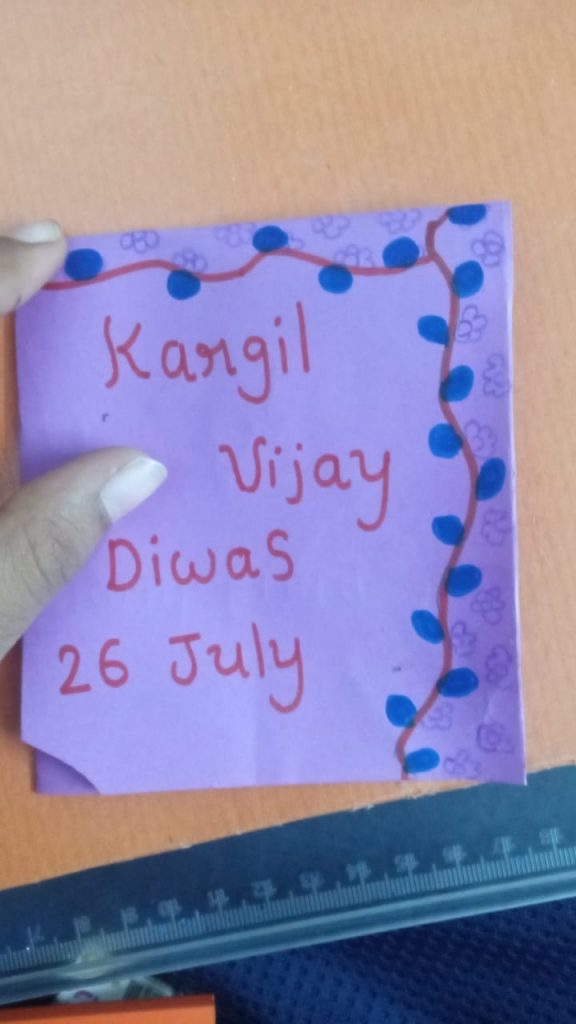 Kargil
Vijay
Diwas
26 July